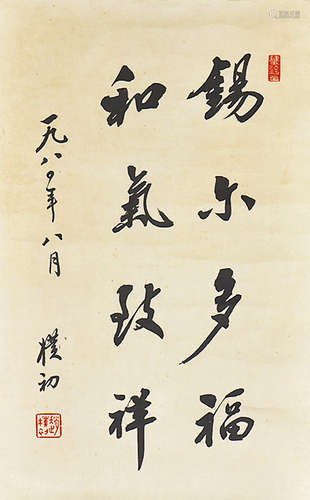 锡尔多福
和气致祥
一九八〇年八月
朴初